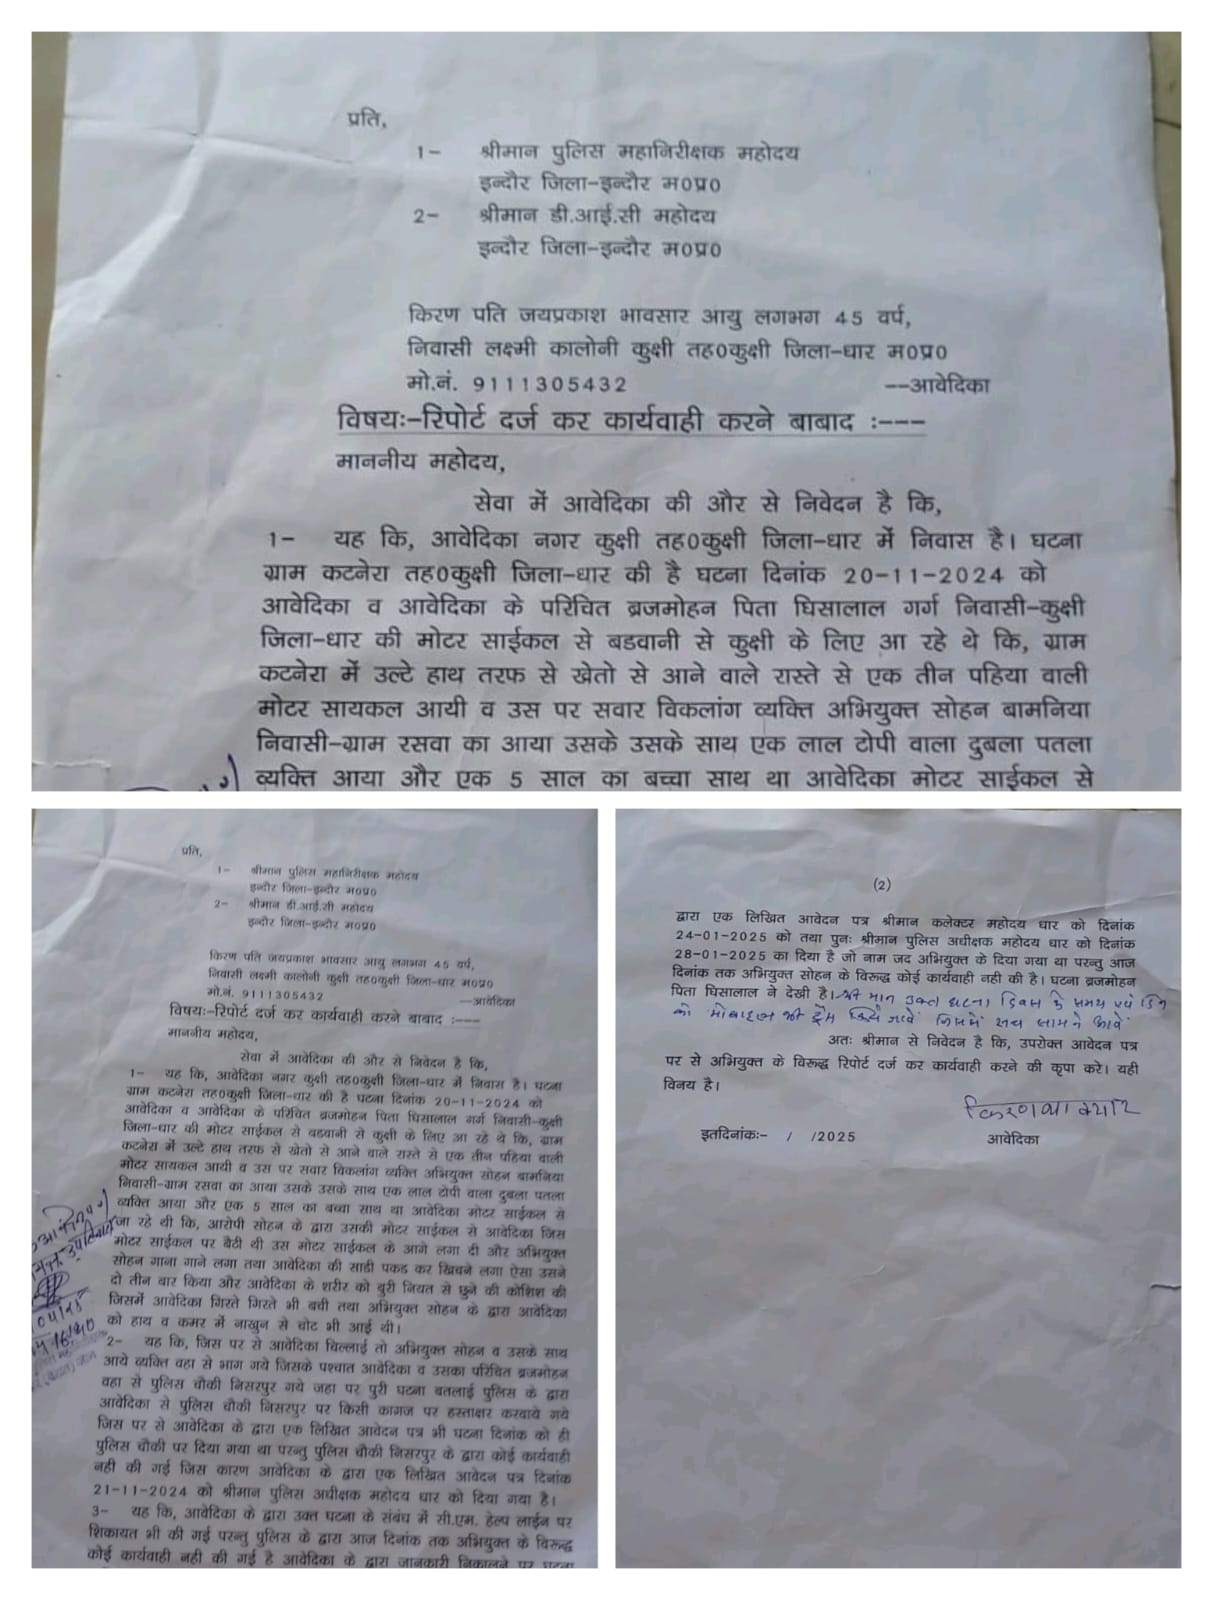 प्रति,
1- श्रीमान पुलिस महानिरीक्षक महोदय
इन्दौर जिला-इन्दौर म0प्र0
2- श्रीमान डी.आई.सी महोदय
इन्दौर जिला-इन्दौर म0प्र0
किरण पति जयप्रकाश भावसार आयु लगभग 45 वर्ष,
निवासी लक्ष्मी कालोनी कुक्षी तह0कुक्षी जिला-धार म0प्र0
मो.नं. 9111305432 --आवेदिका
विषयः-रिपोर्ट दर्ज कर कार्यवाही करने बाबाद :---
माननीय महोदय,
सेवा में आवेदिका की और से निवेदन है कि,
1- यह कि, आवेदिका नगर कुक्षी तह0कुक्षी जिला-धार में निवास है। घटना
ग्राम कटनेरा तह0कुक्षी जिला-धार की है घटना दिनांक 20-11-2024 को
आवेदिका व आवेदिका के परिचित ब्रजमोहन पिता घिसालाल गर्ग निवासी-कुक्षी
जिला-धार की मोटर साईकल से बडवानी से कुक्षी के लिए आ रहे थे कि, ग्राम
कटनेरा में उल्टे हाथ तरफ से खेतो से आने वाले रास्ते से एक तीन पहिया वाली
मोटर सायकल आयी व उस पर सवार विकलांग व्यक्ति अभियुक्त सोहन बामनिया
निवासी-ग्राम रसवा का आया उसके उसके साथ एक लाल टोपी वाला दुबला पतला
व्यक्ति आया और एक 5 साल का बच्चा साथ था आवेदिका मोटर साईकल से
प्रति,
1- श्रीमान पुलिस महानिरीक्षक महोदय
इन्दौर जिला-इन्दौर म0प्र0
2- श्रीमान डी.आई.सी महोदय
इन्दौर जिला-इन्दौर म0प्र0
किरण पति जयप्रकाश भावसार आयु लगभग 45 वर्ष,
निवासी लक्ष्मी कालोनी कुक्षी तह0कुक्षी जिला-धार म0प्र0
मो.नं. 9111305432 --आवेदिका
विषयः-रिपोर्ट दर्ज कर कार्यवाही करने बाबाद :---
माननीय महोदय,
सेवा में आवेदिका की और से निवेदन है कि,
1- यह कि, आवेदिका नगर कुक्षी तह0कुक्षी जिला-धार में निवास है। घटना
ग्राम कटनेरा तह0कुक्षी जिला-धार की है घटना दिनांक 20-11-2024 को
आवेदिका व आवेदिका के परिचित ब्रजमोहन पिता घिसालाल गर्ग निवासी-कुक्षी
जिला-धार की मोटर साईकल से बडवानी से कुक्षी के लिए आ रहे थे कि, ग्राम
कटनेरा में उल्टे हाथ तरफ से खेतो से आने वाले रास्ते से एक तीन पहिया वाली
मोटर सायकल आयी व उस पर सवार विकलांग व्यक्ति अभियुक्त सोहन बामनिया
निवासी-ग्राम रसवा का आया उसके उसके साथ एक लाल टोपी वाला दुबला पतला
व्यक्ति आया और एक 5 साल का बच्चा साथ था आवेदिका मोटर साईकल से
जा रहे थी कि, आरोपी सोहन के द्वारा उसकी मोटर साईकल से आवेदिका जिस
मोटर साईकल पर बैठी थी उस मोटर साईकल के आगे लगा दी और अभियुक्त
सोहन गाना गाने लगा तथा आवेदिका की साडी पकड कर खिचने लगा ऐसा उसने
दो तीन बार किया और आवेदिका के शरीर को बुरी नियत से छुने की कोशिश की
जिसमें आवेदिका गिरते गिरते भी बची तथा अभियुक्त सोहन के द्वारा आवेदिका
को हाथ व कमर में नाखुन से चोट भी आई थी।
2- यह कि, जिस पर से आवेदिका चिल्लाई तो अभियुक्त सोहन व उसके साथ
आये व्यक्ति वहा से भाग गये जिसके पश्चात आवेदिका व उसका परिचित ब्रजमोहन
वहा से पुलिस चौकी निसरपुर गये जहा पर पुरी घटना बतलाई पुलिस के द्वारा
आवेदिका से पुलिस चौकी निसरपुर पर किसी कागज पर हस्ताक्षर करवाये गये
जिस पर से आवेदिका के द्वारा एक लिखित आवेदन पत्र भी घटना दिनांक को ही
पुलिस चौकी पर दिया गया था परन्तु पुलिस चौकी निसरपुर के द्वारा कोई कार्यवाही
नही की गई जिस कारण आवेदिका के द्वारा एक लिखित आवेदन पत्र दिनांक
21-11-2024 को श्रीमान पुलिस अधीक्षक महोदय धार को दिया गया है।
3- यह कि, आवेदिका के द्वारा उक्त घटना के संबंध में सी.एम. हेल्प लाईन पर
शिकायत भी की गई परन्तु पुलिस के द्वारा आज दिनांक तक अभियुक्त के विरूद्ध
कोई कार्यवाही नही की गई है आवेदिका के द्वारा जानकारी निकालने पर घटना
(2)
द्वारा एक लिखित आवेदन पत्र श्रीमान कलेक्टर महोदय धार को दिनांक
24-01-2025 को तथा पुनः श्रीमान पुलिस अधीक्षक महोदय धार को दिनांक
28-01-2025 का दिया है जो नाम जद अभियुक्त के दिया गया था परन्तु आज
दिनांक तक अभियुक्त सोहन के विरूद्ध कोई कार्यवाही नही की है। घटना ब्रजमोहन
पिता घिसालाल ने देखी है। श्री मान उक्त घटना दिवस के समय एवं दिन
की मोबाइल की ट्रेस किये जावे जिससे सच सामने आवे
अतः श्रीमान से निवेदन है कि, उपरोक्त आवेदन पत्र
पर से अभियुक्त के विरूद्ध रिपोर्ट दर्ज कर कार्यवाही करने की कृपा करे। यही
विनय है।
इतदिनांकः- / /2025 आवेदिका